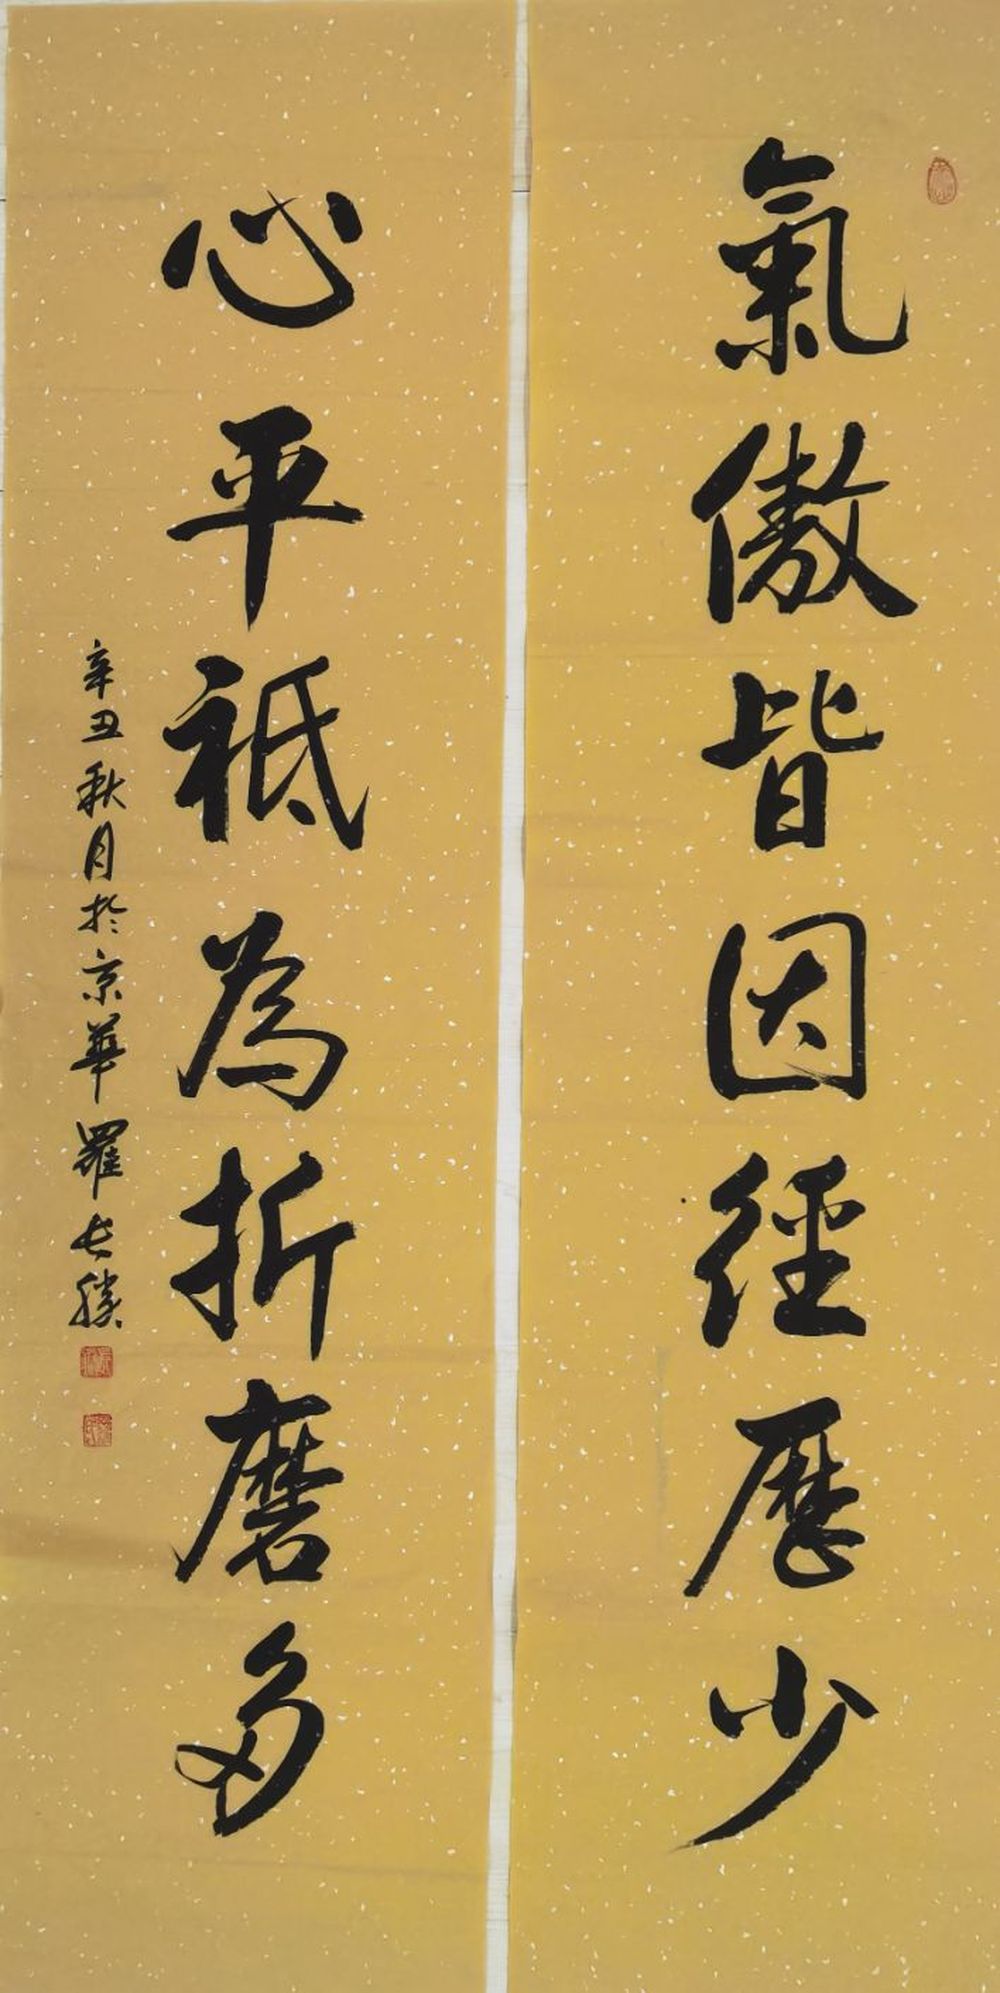 氣傲皆因經歷少
心平祗為折磨多
辛丑秋月於京華羅長勝